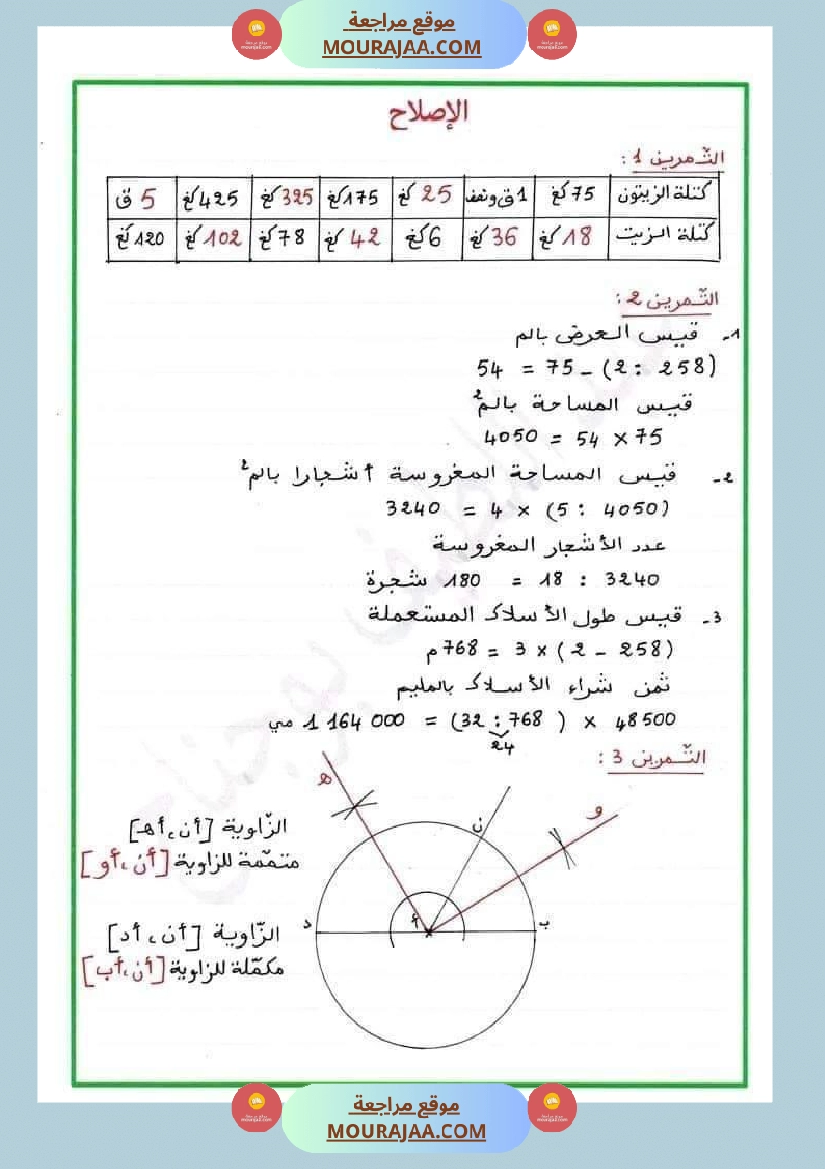 موقع مراجعة
MOURAJAA.COM
الإصلاح
التّمرين 1 :
كتلة الزيتون 75 كغ 1 ق ونصف 25 كغ 175 كغ 325 كغ 425 كغ 5 ق
كتلة الزيت 18 كغ 36 كغ 6 كغ 42 كغ 78 كغ 102 كغ 120 كغ
التّمرين 2 :
1- قيس العرض بالم
(258 : 2) - 75 = 54
قيس المساحة بالم²
75 × 54 = 4050
2- قيس المساحة المغروسة أشجارا بالم²
(4050 : 5) × 4 = 3240
عدد الأشجار المغروسة
3240 : 18 = 180 شجرة
3- قيس طول الأسلاك المستعملة
(258 - 2) × 3 = 768 م
ثمن شراء الأسلاك بالمليم
48500 × (768 : 32) = 1 164 000 مي
24
التّمرين 3 :
ه
ن
و
الزّاوية [أن، أه]
متمّمة للزاوية [أن، أو]
د
أ
ب
الزّاوية [أن، أد]
مكمّلة للزاوية [أن، أب]
موقع مراجعة
MOURAJAA.COM